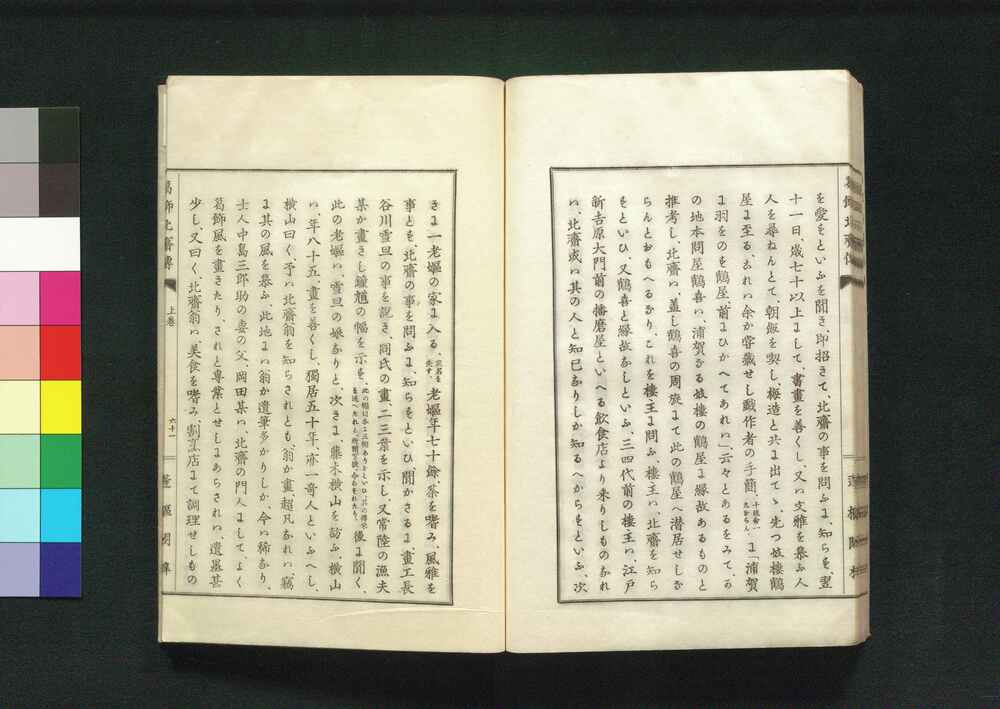 を愛をといふを聞き、即招きて、北齋の事を問ふよ、知らを、翌
十一日、歳七十以上よして、書畫を善くし、又い文雅を慕ふ人
人を尋ねんとて、朝飯を喫し、梅造と共よ出てゝ、先つ妓樓鶴
屋よ至る、されい余か嘗藏せし戯作者の手簡、十返舎一九ならん、よ「浦賀
よ羽をのを鶴屋、前よひかへてあれい」云々とあるをみて、る
の地本問屋鶴喜い、浦賀なる妓樓の鶴屋よ縁故あるものと
推考し、北齋い、蓋し鶴喜の周旋よて此の鶴屋へ潜居せしな
らんとおもへるなり、これを樓主よ問ふ、樓主い、北齋を知ら
をといひ、又鶴喜と縁故なしといふ、三四代前の樓主い、江戸
新吉原大門前の播磨屋といへる飲食店より来りしものなれ
い、北齋或い其の人と知已なりしか知るへからをといふ、次
きよ一老嫗の家よ入る、家名を失す、老嫗年七十餘、茶を嗜み、風雅を
事とも、北齋の事を問ふよ、知らをといひ、聞かさるよ、畫工長
谷川雪旦の事を説き、同氏の畫、二三葉を示し、又常陸の漁夫
某か畫きし鐘馗の幅を示を、後よ聞く、
此の老嫗い、雪旦の娘なりと、次きよ、藤木横山を訪ふ、横山
い、年八十五、畫を善くし、獨居五十年、亦一奇人といふへし、
横山曰く、予い北齋翁を知らされとも、翁か畫、超凡なれい、竊
よ其の風を慕ふ、此地よい翁か遺筆多かりしか、今い稀なり、
士人中島三郎助の妻の父、岡田某い、北齋の門人よして、よく
葛飾風を畫きたり、されと專業とせしよあらされい、遺墨甚
少し、又曰く、北齋翁い、美食を嗜み、割烹店よて調理せしもの
葛飾北齋傳
上巻
六十一